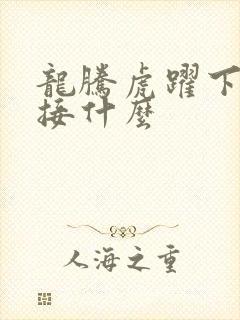 龍騰虎躍下
接什麼
人海之重